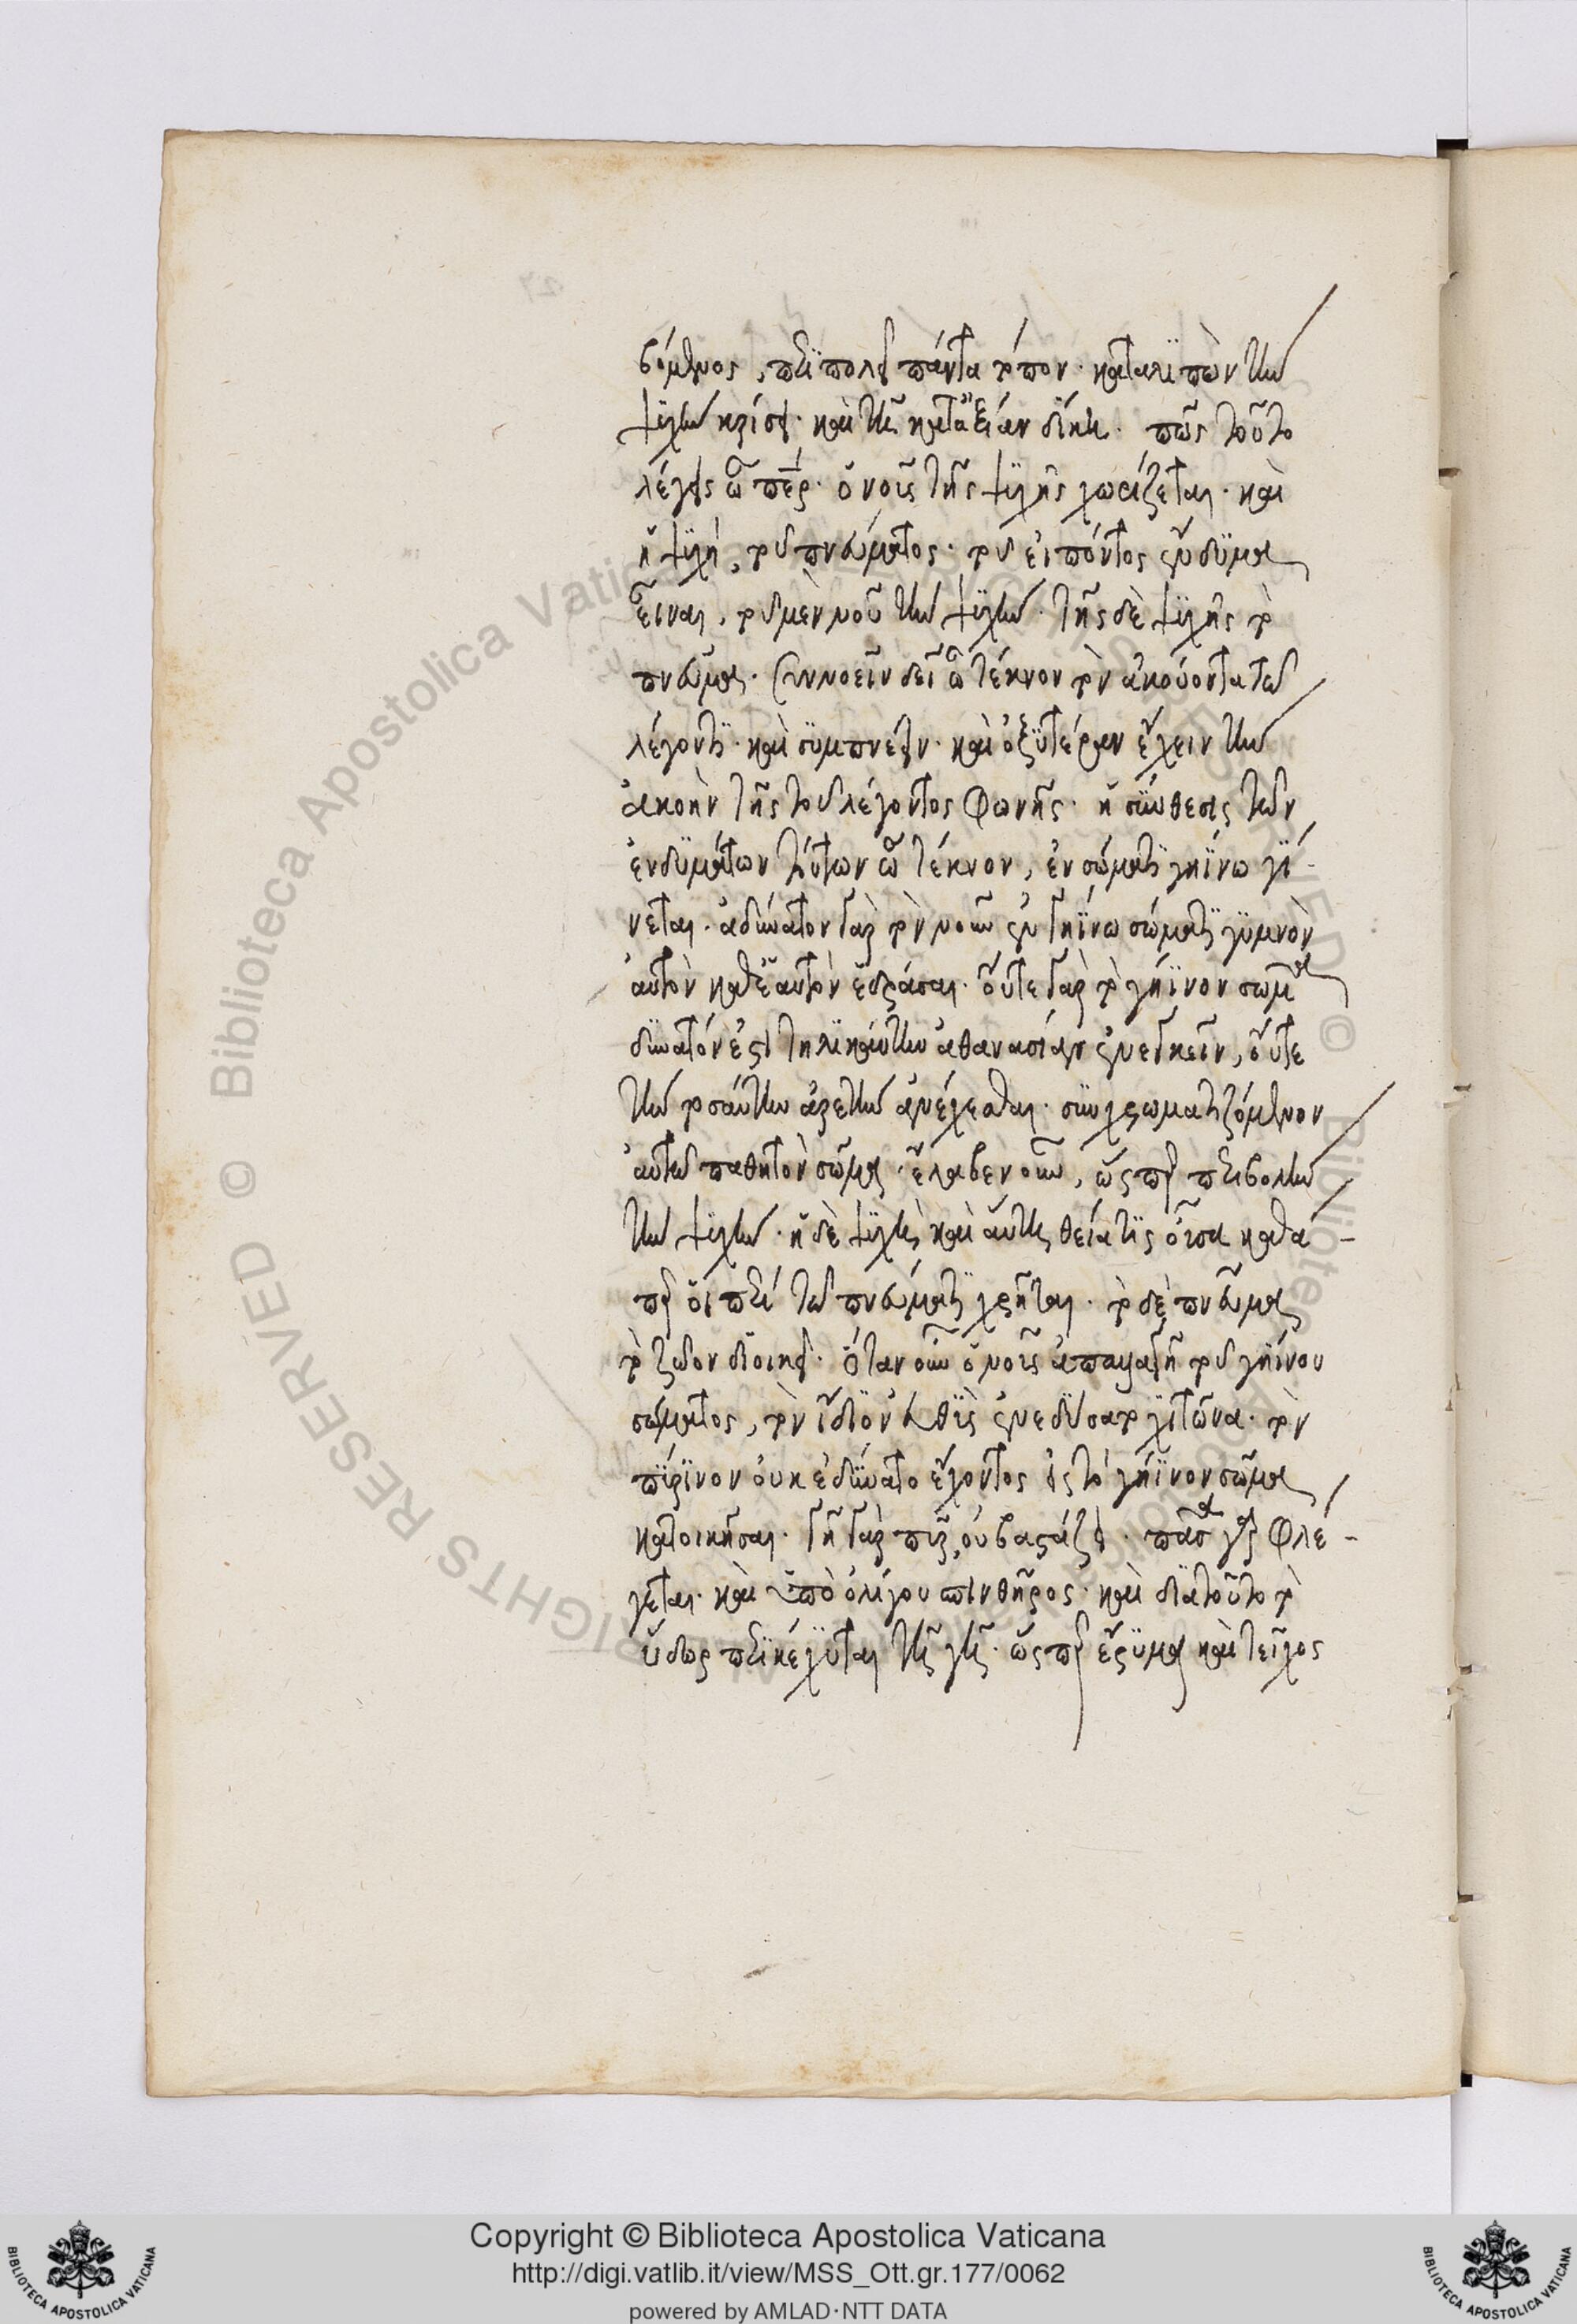 βόμενος, περιπολεῖ πάντα τόπον· καταλιπὼν τὴν
ψυχὴν κρίσει· καὶ τῇ κατ' ἀξίαν δίκῃ. πῶς τοῦτο
λέγεις ὦ περ· ὁ νοῦς τῆς ψυχῆς χωρίζεται· καὶ
ἡ ψυχὴ, τοῦ πνεύματος· τοῦ εἰπόντος ἔνδυμα
εἶναι, τοῦ μὲν νοῦ τὴν ψυχὴν· τῆς δὲ ψυχῆς τὸ
πνεῦμα· συννοεῖν δεῖ ὦ τέκνον τὸν ἀκούοντα τῶ
λέγοντι· καὶ συμπνέειν· καὶ ὀξυτέραν ἔχειν τὴν
ἀκοὴν τῆς τοῦ λέγοντος φωνῆς· ἡ σύνθεσις τῶν
ἐνδυμάτων τούτων ὦ τέκνον, ἐν σώματι γηΐνω γί-
νεται· ἀδύνατον γὰρ τὸν νοῦν ἐν γηΐνω σώματι γυμνὸν
αὐτὸν καθ' ἑαυτὸν ἑδράσαι· οὔτε γὰρ τὸ γήϊνον σῶμα
δυνατόν ἐστι τηλικαύτην ἀθανασίαν ἐνεγκεῖν, οὔτε
τὴν τοσαύτην ἀρετὴν ἀνέχεσθαι· συγχρωματιζόμενον
αὐτῶ παθητὸν σῶμα· ἔλαβεν οὖν, ὥσπερ περιβολὴν
τὴν ψυχὴν· ἡ δὲ ψυχὴ καὶ αὐτὴ θεία τις οὖσα καθά-
περ ὁι περὶ τῶ πνεύματι χρῆται· τὸ δὲ πνεῦμα
τὸ ζῶον διοικεῖ· ὅταν οὖν ὁ νοῦς ἀπαλαγῆ τοῦ γηΐνου
σώματος, τὸν ἴδιον εὐθὺς ἐνεδύσατο χιτῶνα· τὸν
πύρινον οὐκ ἐδύνατο ἔχοντος εἰς τὸ γήϊνον σῶμα
κατοικῆσαι· γῆ γὰρ πῦρ οὐ βαστάζει· πᾶσα γὰρ φλέ-
γεται· καὶ ὑπὸ ὀλίγου σπινθῆρος· καὶ διὰ τοῦτο τὸ
ὕδωρ περικέχυται τῇ γῇ· ὥσπερ ἔρυμα καὶ τεῖχος
Copyright © Biblioteca Apostolica Vaticana
http://digi.vatlib.it/view/MSS_Ott.gr.177/0062
powered by AMLAD·NTT DATA